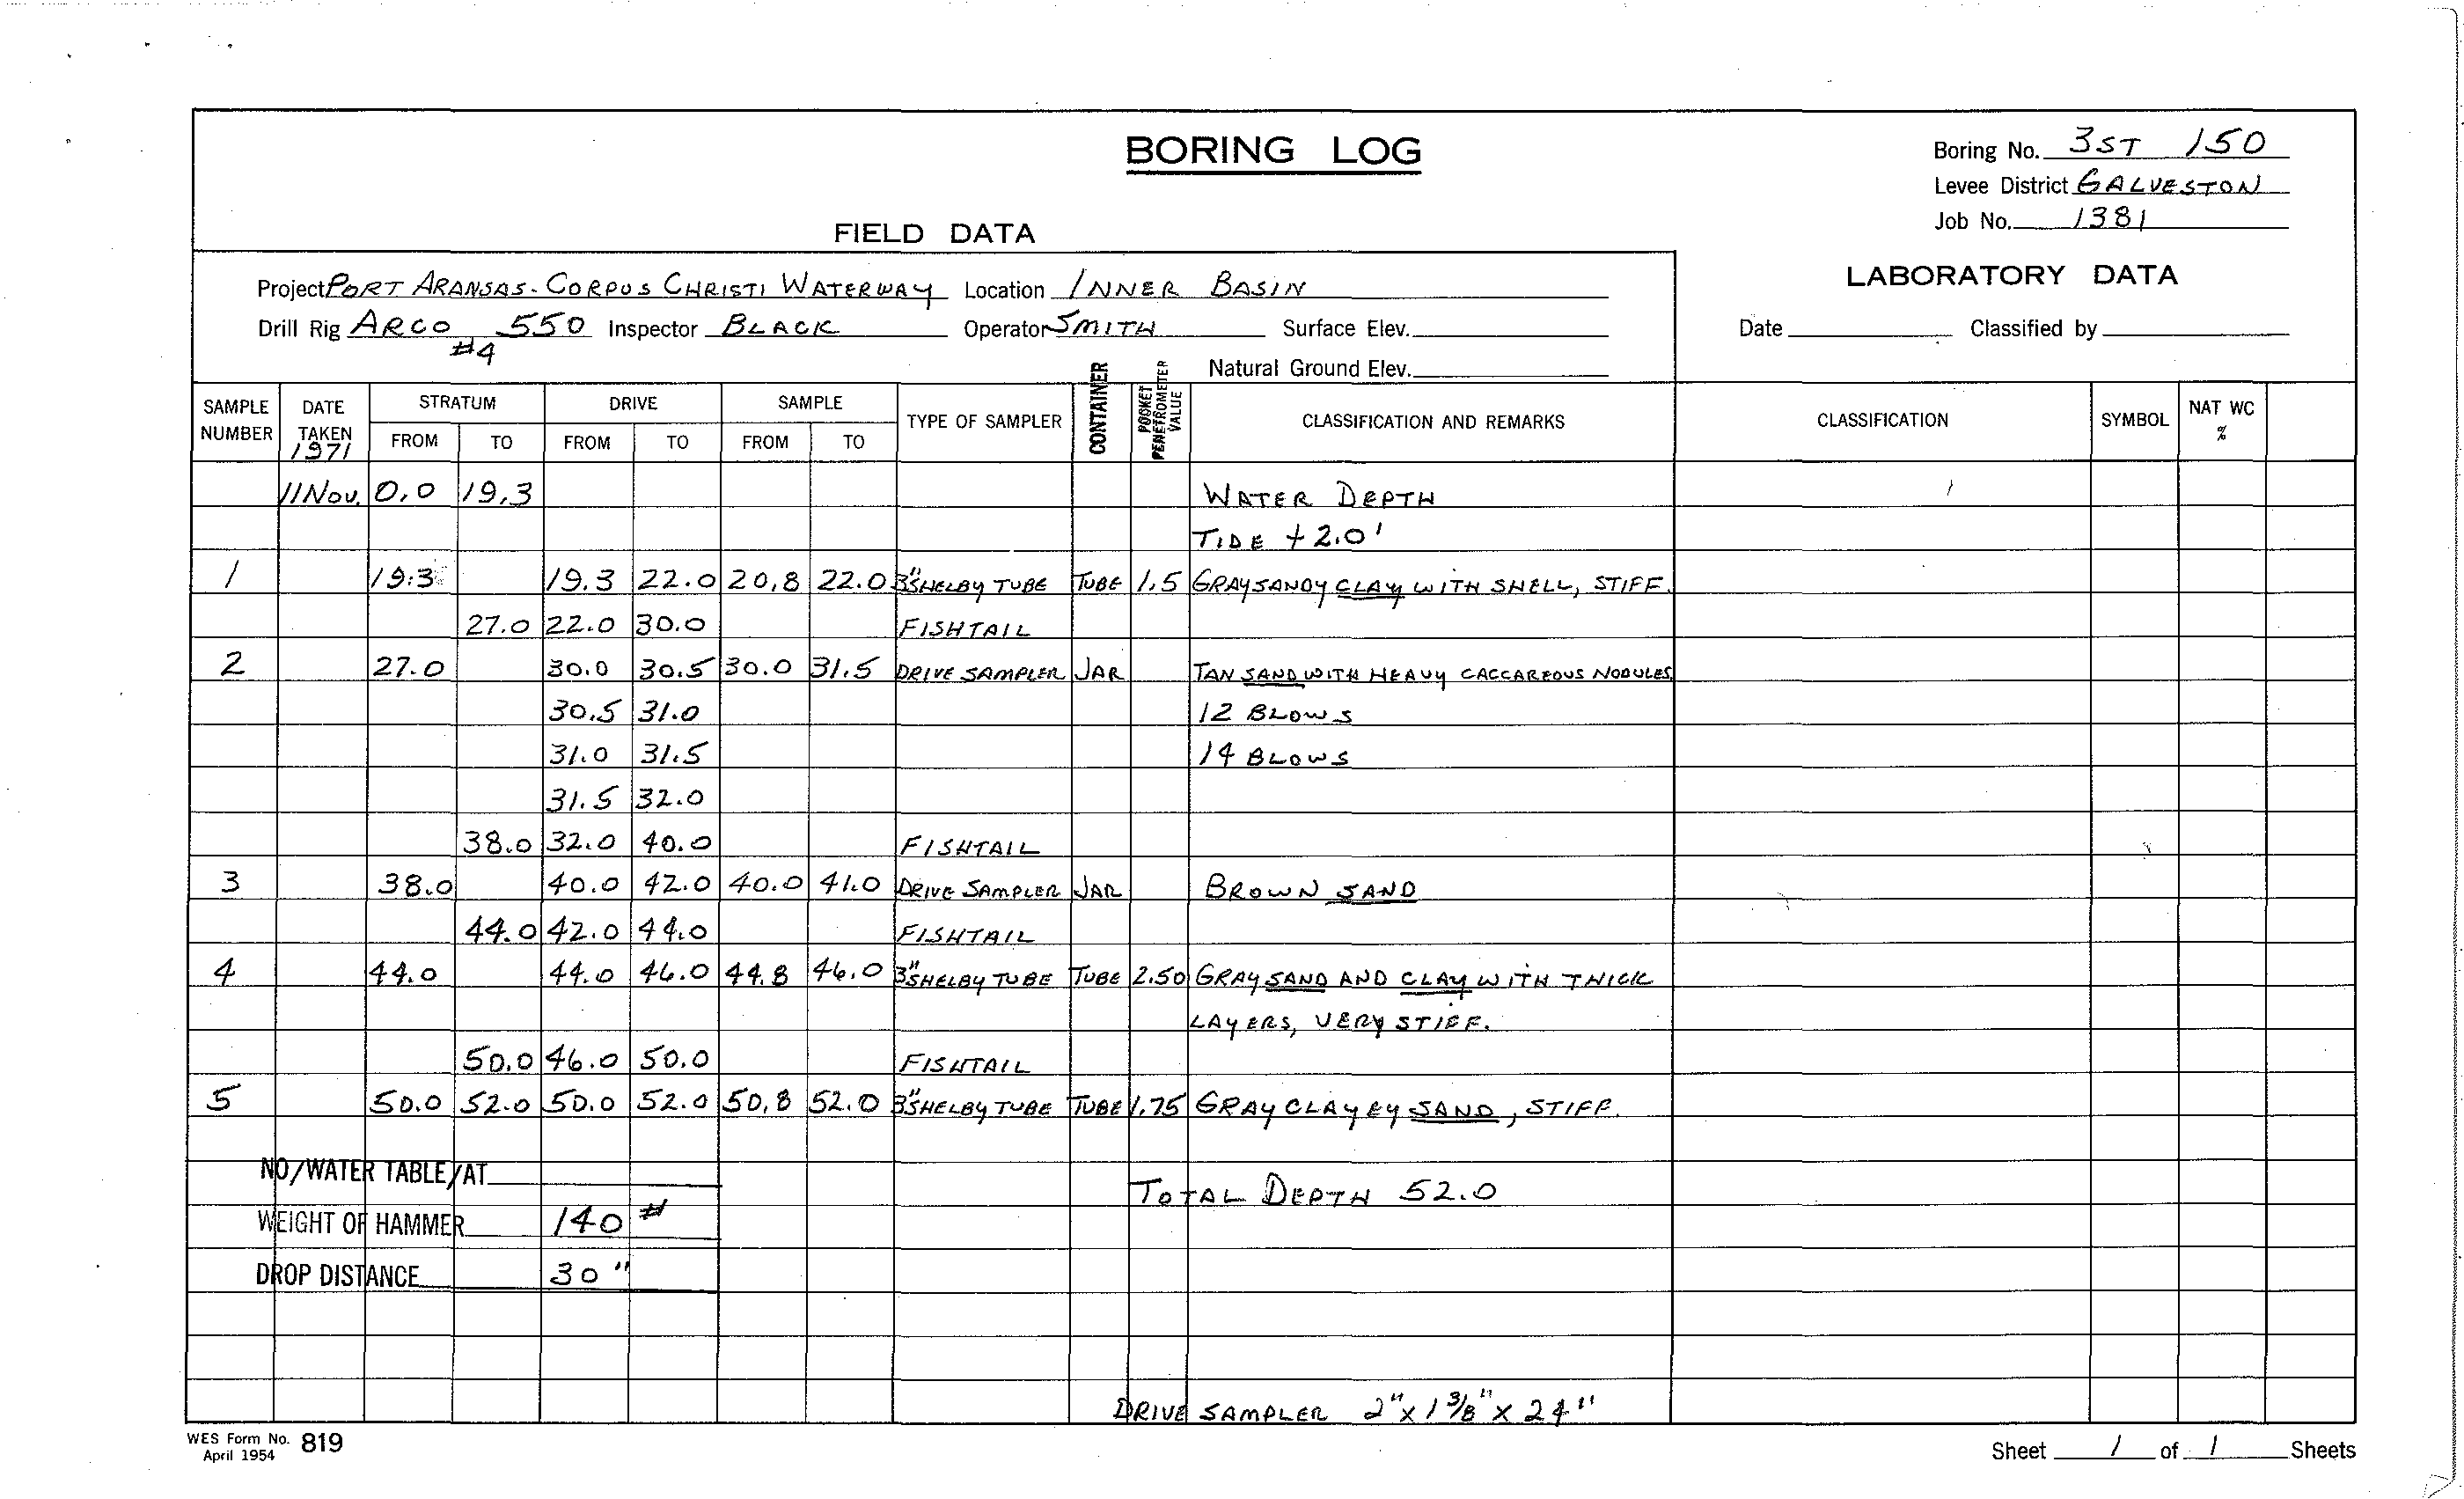 BORING LOG
Boring No. 3ST 150
Levee District GALVESTON
Job No. 1381
FIELD DATA
LABORATORY DATA
Project PORT ARANSAS - CORPUS CHRISTI WATERWAY Location INNER BASIN
Drill Rig ARCO 550 Inspector BLACK Operator SMITH Surface Elev.
#4
Date Classified by
Natural Ground Elev.
SAMPLE NUMBER DATE TAKEN 1971 STRATUM FROM TO DRIVE FROM TO SAMPLE FROM TO TYPE OF SAMPLER CONTAINER POCKET PENETROMETER VALUE CLASSIFICATION AND REMARKS CLASSIFICATION SYMBOL NAT WC %
11 Nov. 0.0 19.3 WATER DEPTH
TIDE + 2.0'
1 19.3 19.3 22.0 20.8 22.0 3" SHELBY TUBE TUBE 1.5 GRAY SANDY CLAY WITH SHELL, STIFF.
27.0 22.0 30.0 FISHTAIL
2 27.0 30.0 30.5 30.0 31.5 DRIVE SAMPLER JAR TAN SAND WITH HEAVY CACCAREOUS NODULES
30.5 31.0 12 BLOWS
31.0 31.5 14 BLOWS
31.5 32.0
38.0 32.0 40.0 FISHTAIL
3 38.0 40.0 42.0 40.0 41.0 DRIVE SAMPLER JAR BROWN SAND
44.0 42.0 44.0 FISHTAIL
4 44.0 44.0 46.0 44.8 46.0 3" SHELBY TUBE TUBE 2.50 GRAY SAND AND CLAY WITH THICK
LAYERS, VERY STIFF.
50.0 46.0 50.0 FISHTAIL
5 50.0 52.0 50.0 52.0 50.8 52.0 3" SHELBY TUBE TUBE 1.75 GRAY CLAYEY SAND, STIFF.
NO/WATER TABLE/AT
TOTAL DEPTH 52.0
WEIGHT OF HAMMER 140 #
DROP DISTANCE 30"
DRIVE SAMPLER 2" X 1 3/8" X 24"
WES Form No. 819
April 1954
Sheet 1 of 1 Sheets